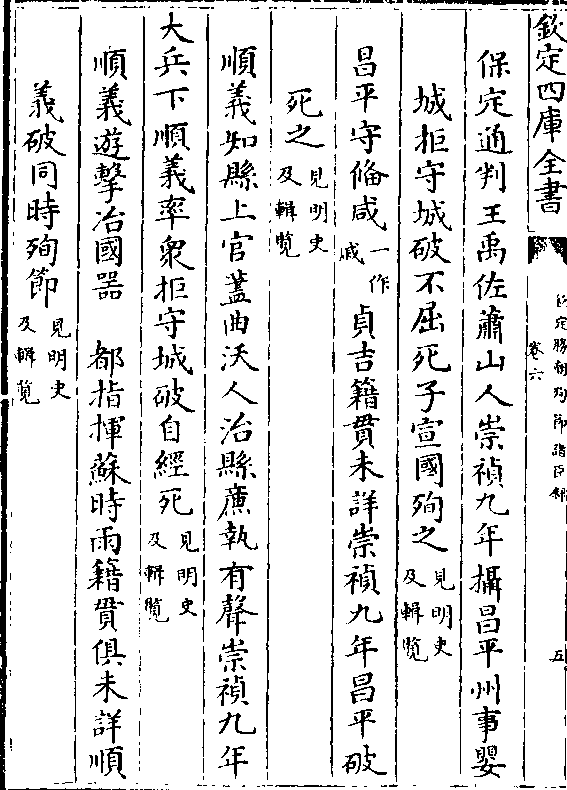 欽定四庫全書
欽定勝朝殉節諸臣錄
卷六
五
保定通判王禹佐蕭山人崇禎九年攝昌平州事嬰
城拒守城破不屈死子宣國殉之見明史及輯覽
昌平守備咸一作戚貞吉籍貫未詳崇禎九年昌平破
死之見明史及輯覽
順義知縣上官藎曲沃人治縣廉執有聲崇禎九年
大兵下順義率衆拒守城破自經死見明史及輯覽
順義遊擊治國器 都指揮蘇時雨籍貫俱未詳順
義破同時殉節見明史及輯覽